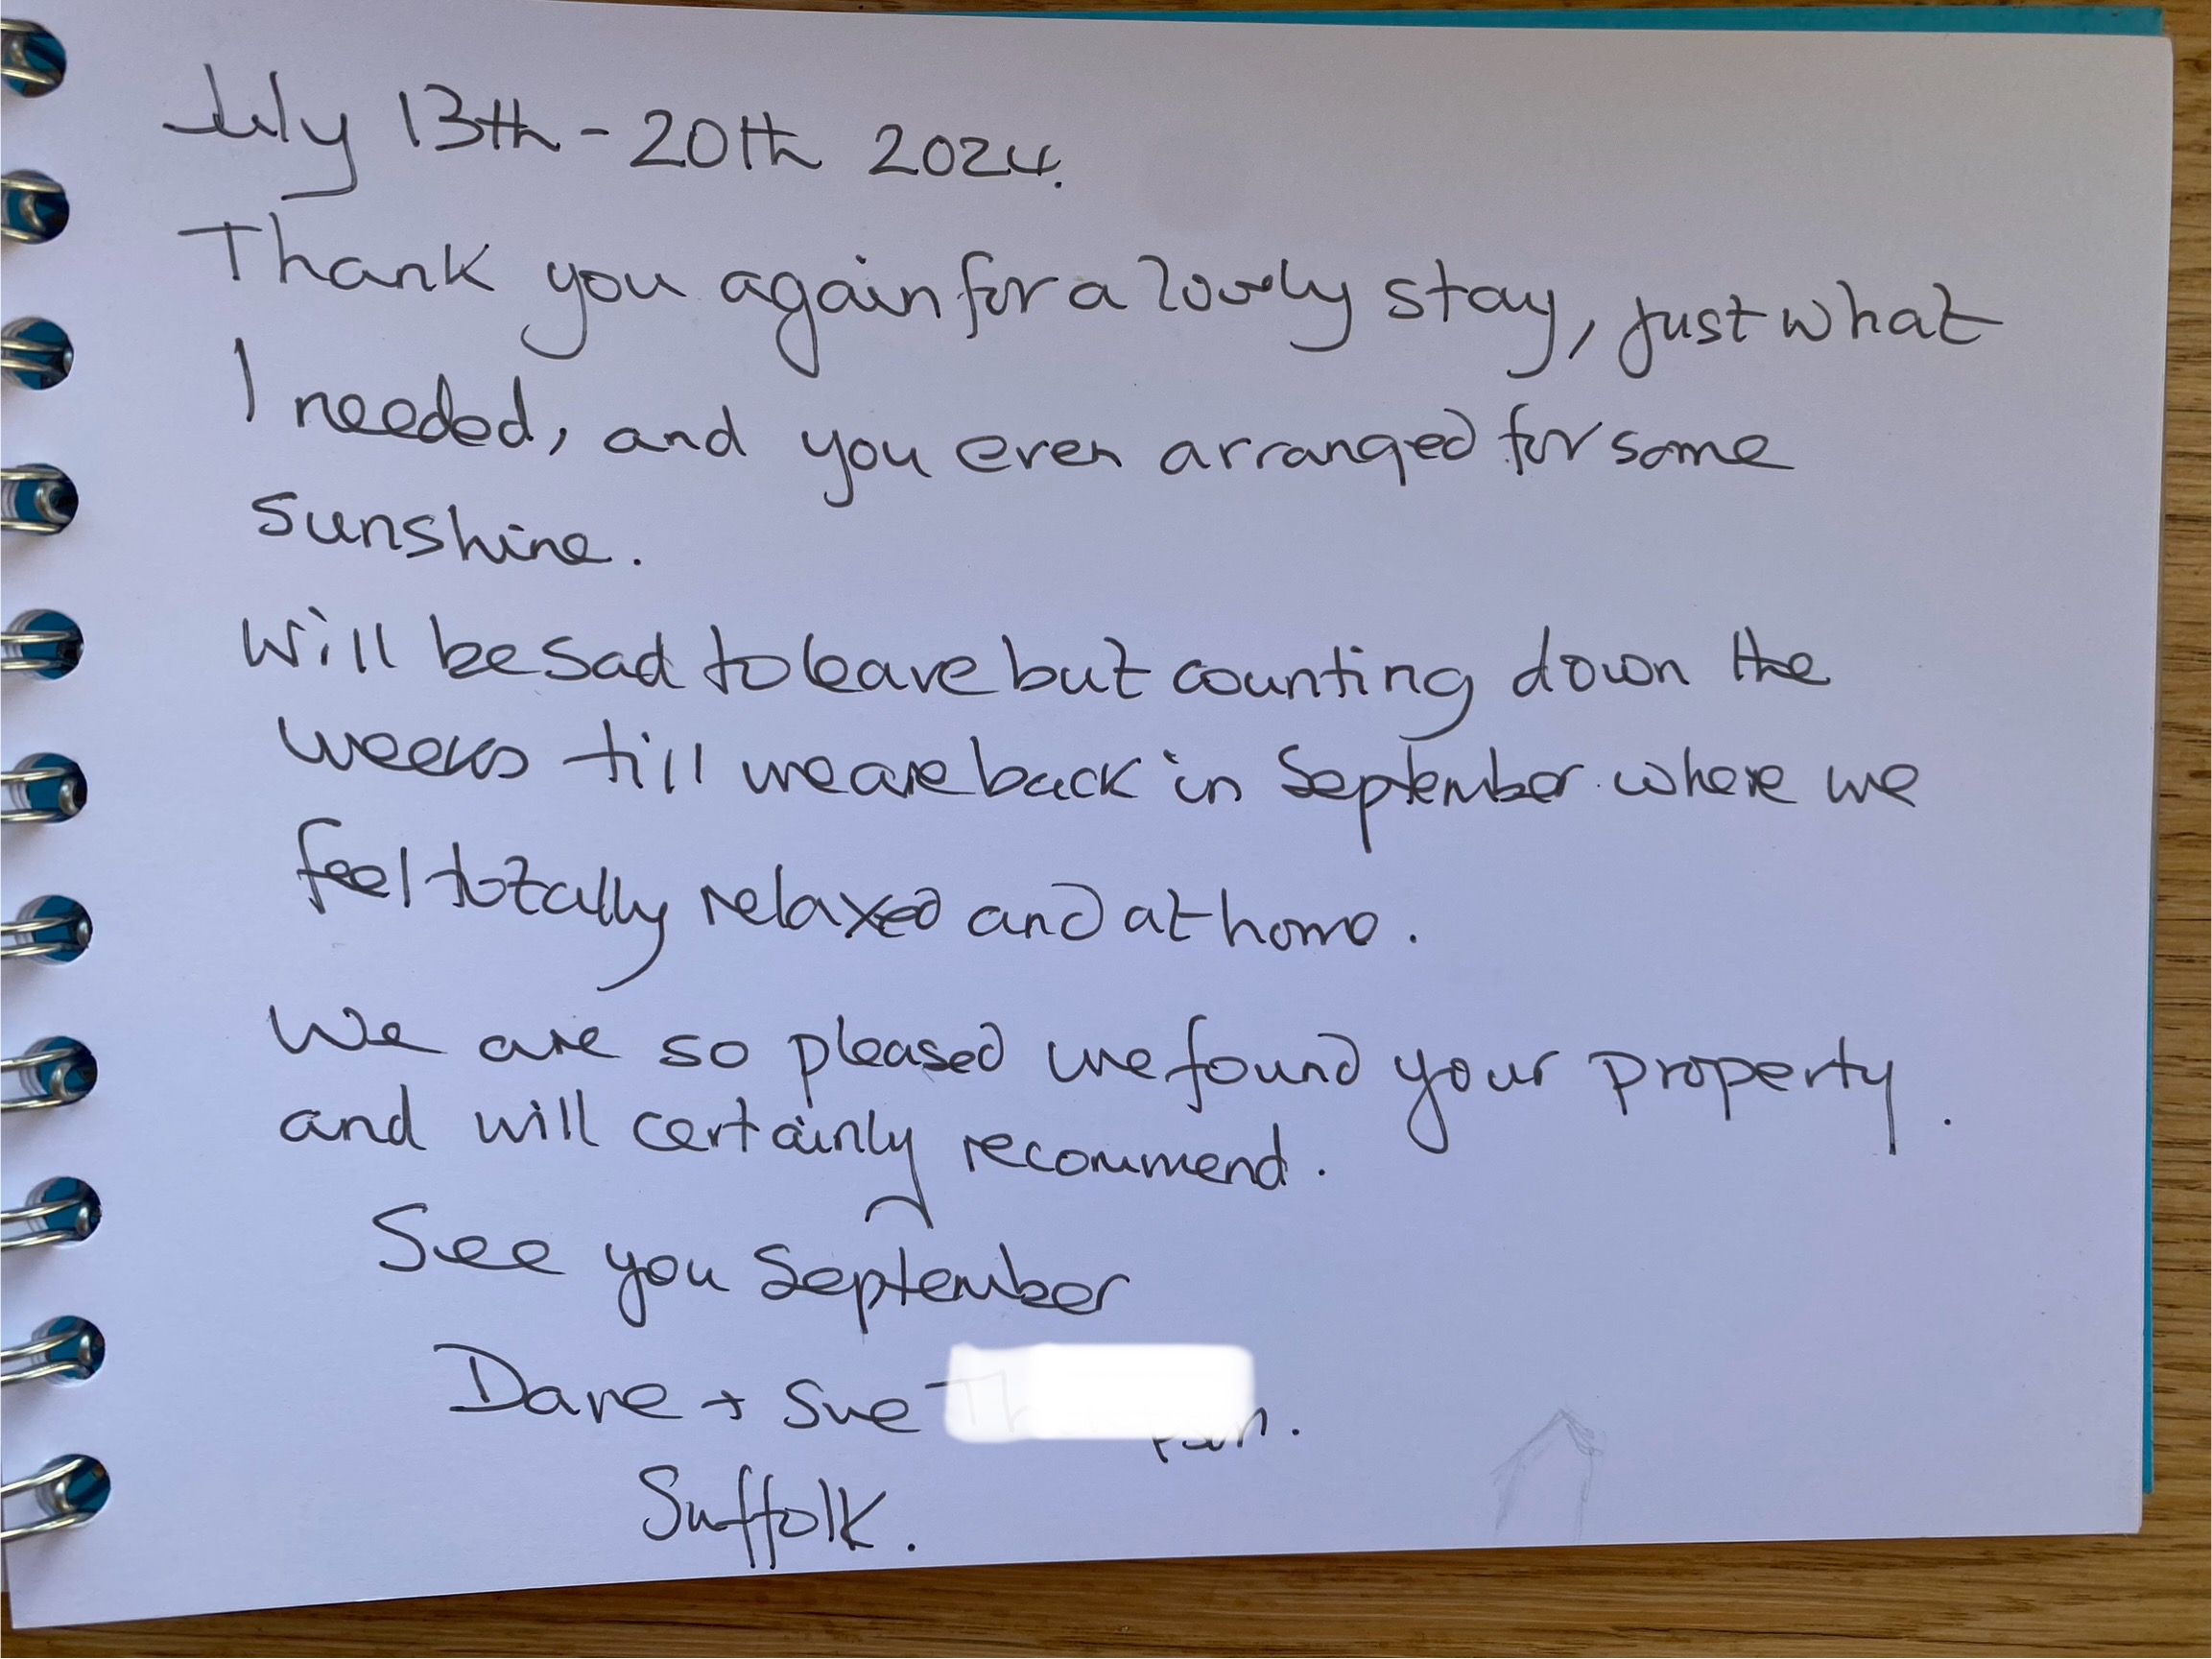 July 13th - 20th 2024.
Thank you again for a lovely stay, just what
I needed, and you even arranged for some
sunshine.
Will be sad to leave but counting down the
weeks till we are back in September where we
feel totally relaxed and at home.
We are so pleased we found your property.
and will certainly recommend.
See you September
Dave + Sue
Suffolk.